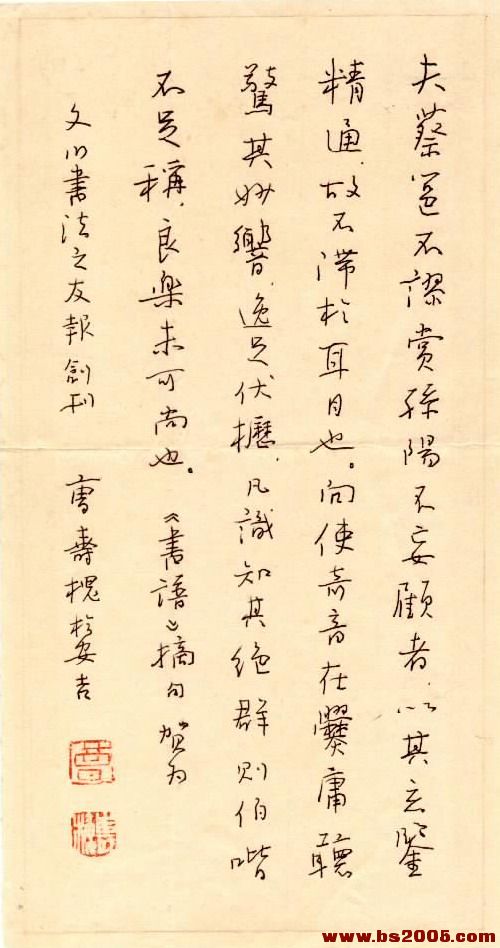 夫蔡邕不謬賞孫陽不妄顧者，以其玄鑒
精通，故不滞於耳目也。向使奇音在爨庸聽
驚其妙響，逸足伏櫪，凡識知其绝群則伯喈
不足稱，良樂未可尚也。《書譜》摘句 賀为
文川書法之友報創刊 曹壽槐於安吉
www.bs2005.com